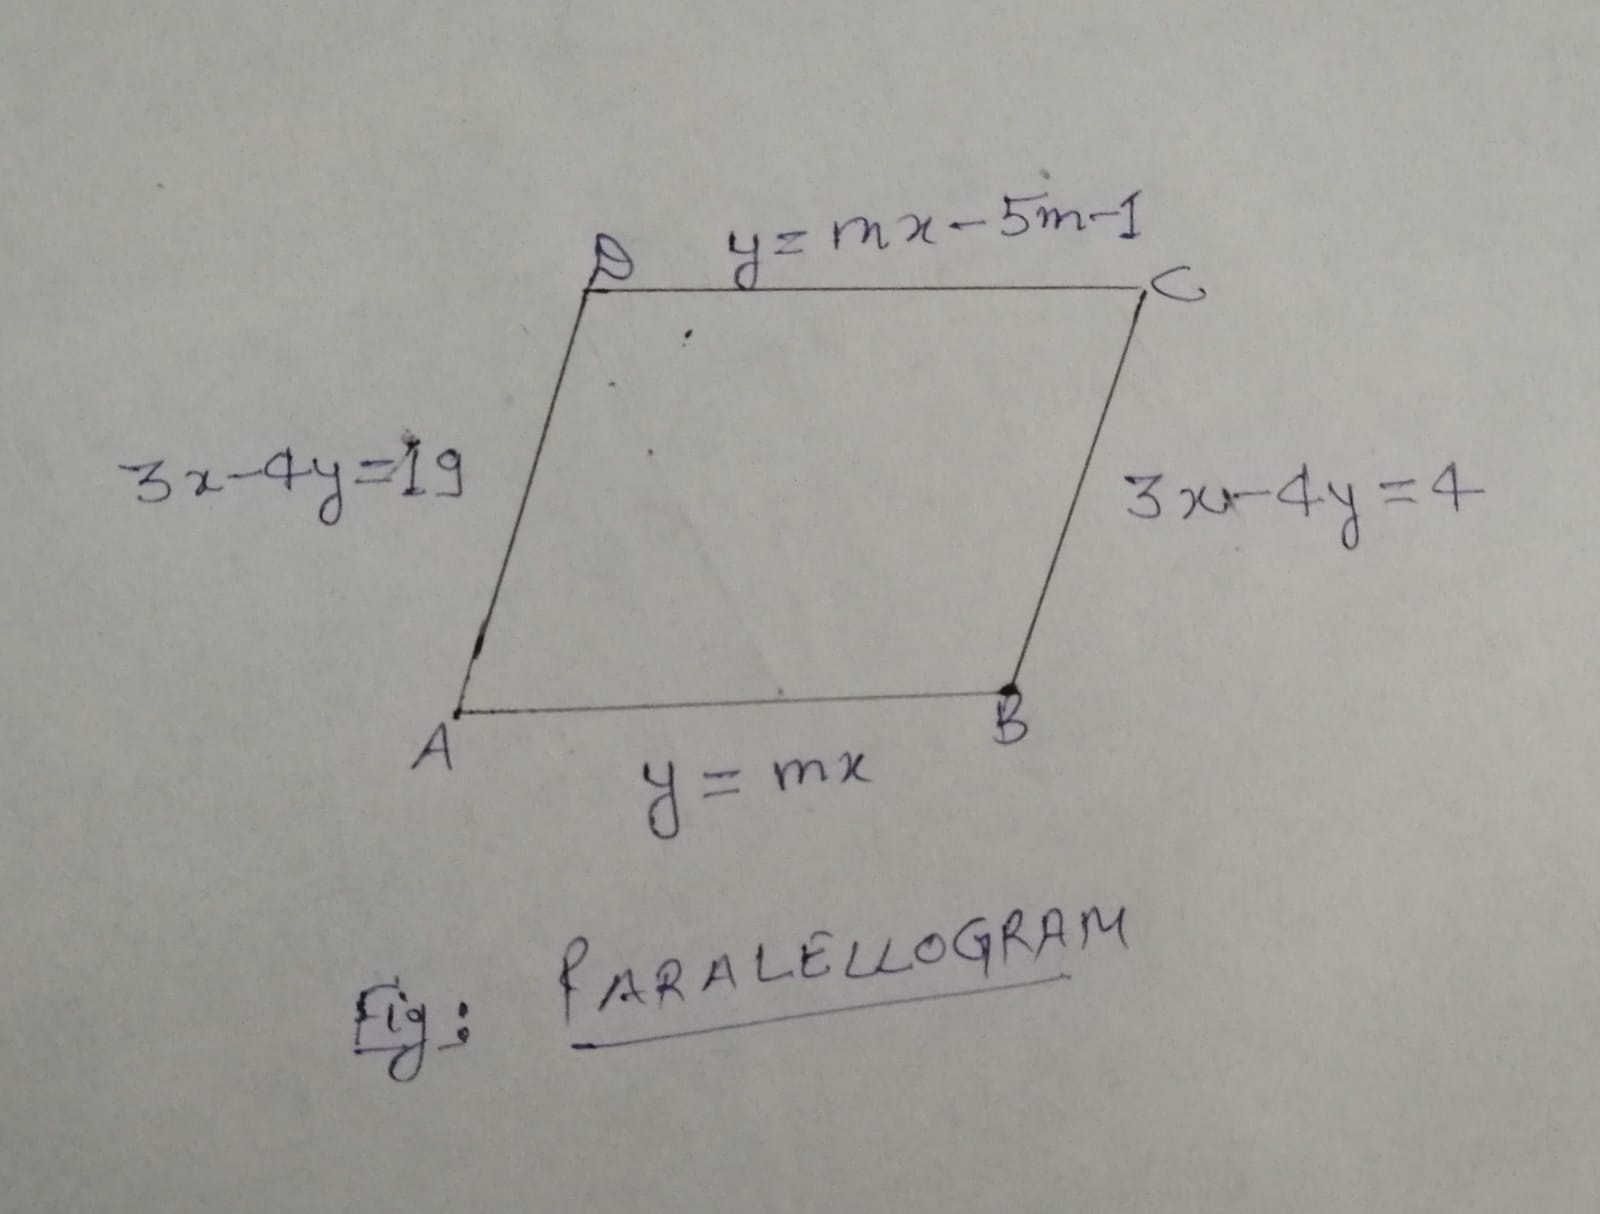 D
y = mx - 5m - 1
C
3x - 4y = 19
3x - 4y = 4
A
B
y = mx
Fig: PARALELLOGRAM